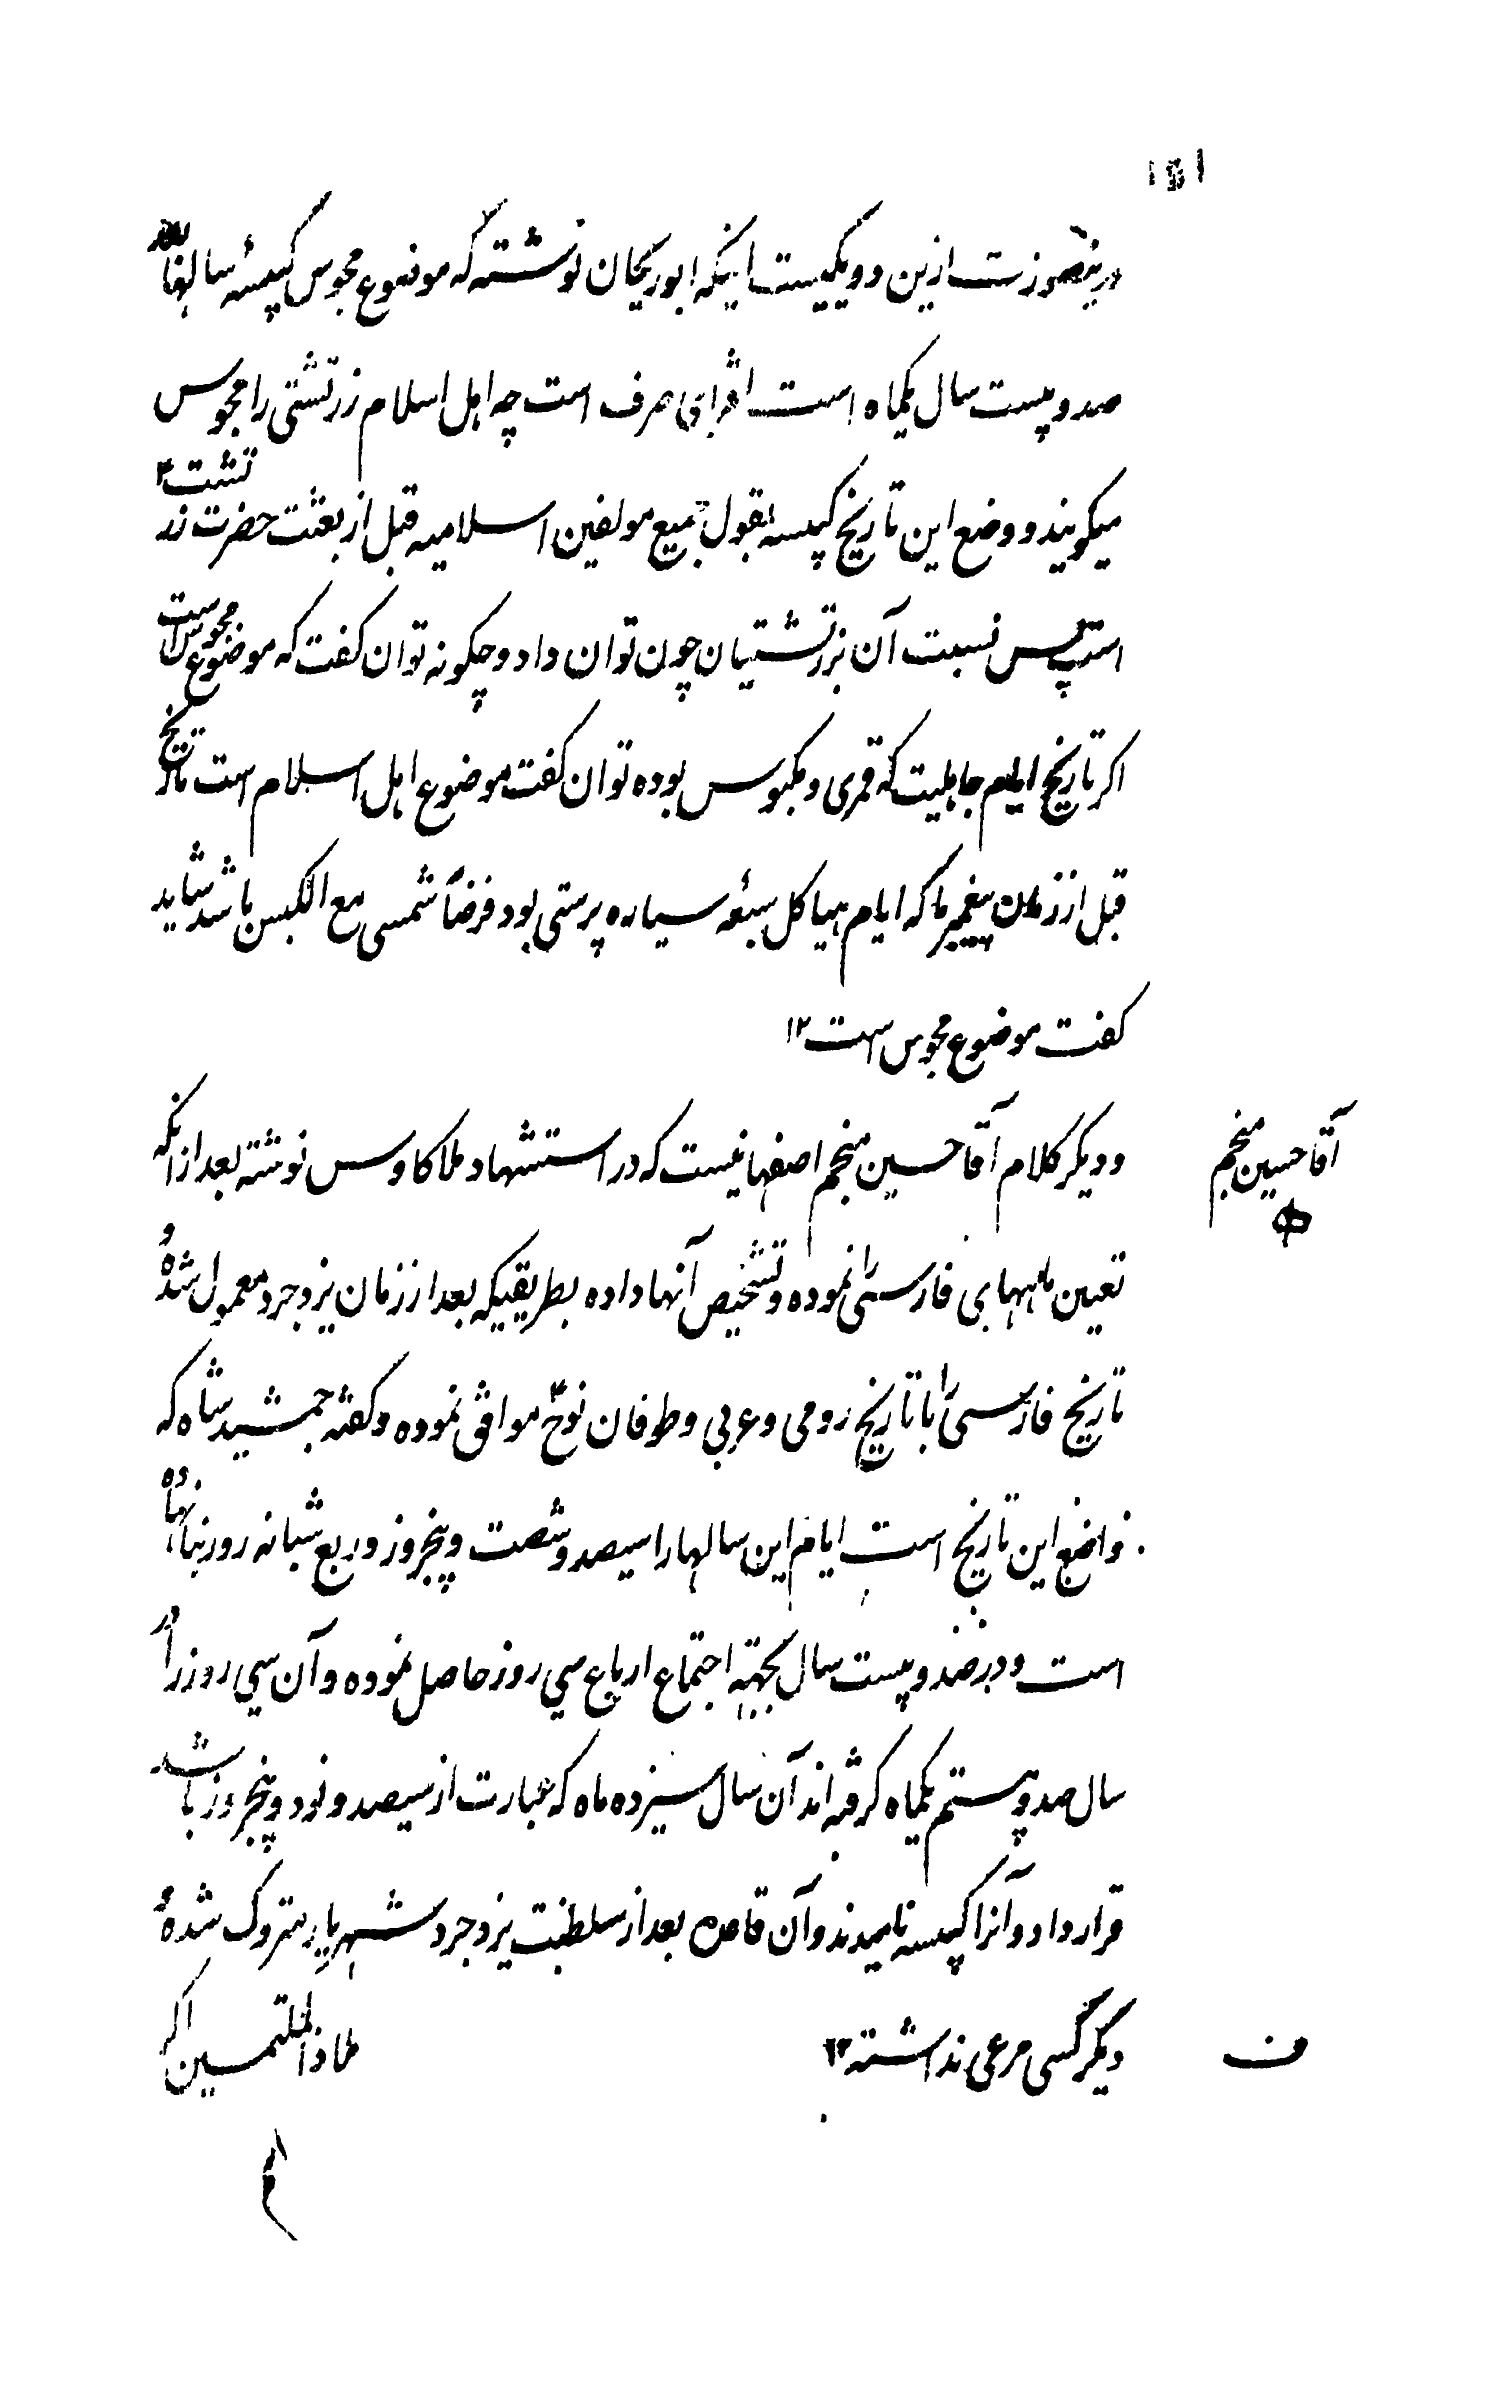 ۱۵۱
درینصورت ازین دو یکیست اینکه ابوریحان نوشته که موضوع مجوس کبیسهٔ سالهای
صد و بیست سال یکماه است افترای صرف است چه اهل اسلام زرتشتی را مجوس
میکویند و وضع این تاریخ کبیسه بقول جمیع مولفین اسلامیه قبل از بعثت حضرت زرتشت
است پس نسبت آن بزرتشتیان چون توان داد و چکونه توان کفت که موضوع مجوس است
اکر تاریخ ایام جاهلیت که قمری و مکبوس بوده توان کفت موضوع اهل اسلام است تاریخ
قبل از زمان پیغمبر ما که ایام هیاکل سبعهٔ سیاره پرستی بود فرضاً شمسی مع الکبس باشد شاید
کفت موضوع مجوس است ۱۲
آقا حسین منجم
و دیکر کلام آقا حسین منجم اصفهانیست که در استشهاد ملا کاوس نوشته بعد از انکه
تعین ماههای فارسی را نموده و تشخیص آنها داده بطریقیکه بعد از زمان یزدجرد معمول شده و
تاریخ فارسی را با تاریخ رومی و عربی و طوفان نوح موافق نموده و کفته جمشید شاه که
واضع این تاریخ است ایام این سالها را سیصد و شصت و پنجروز و ربع شبانه روز بنا نهاده
است و در صد و بیست سال بجهته اجتماع ارباع سی روز حاصل نموده و آن سی روز را در
سال صد و بیستم یکماه کرفته اند آن سال سیزده ماه که عبارت از سیصد و نود و پنجروز باشد
قرار داد و آنرا کبیسه نامیدند و آن قاعده بعد از سلطنت یزدجرد شهریار متروک شده و
دیکر کسی مرعی نداشته ۱۲
ف
ملاذ الملتمسین اکر